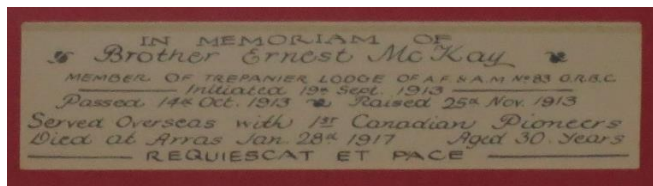 IN MEMORIAM OF
Brother Ernest McKay
MEMBER OF TREPANIER LODGE OF A.F. & A.M Nº 83 G.R.B.C.
Initiated 19th Sept. 1913
Passed 14th Oct. 1913 Raised 25th Nov. 1913
Served Overseas with 1ST Canadian Pioneers
Died at Arras Jan. 28th 1917 Aged 30 Years
REQUIESCAT ET PACE